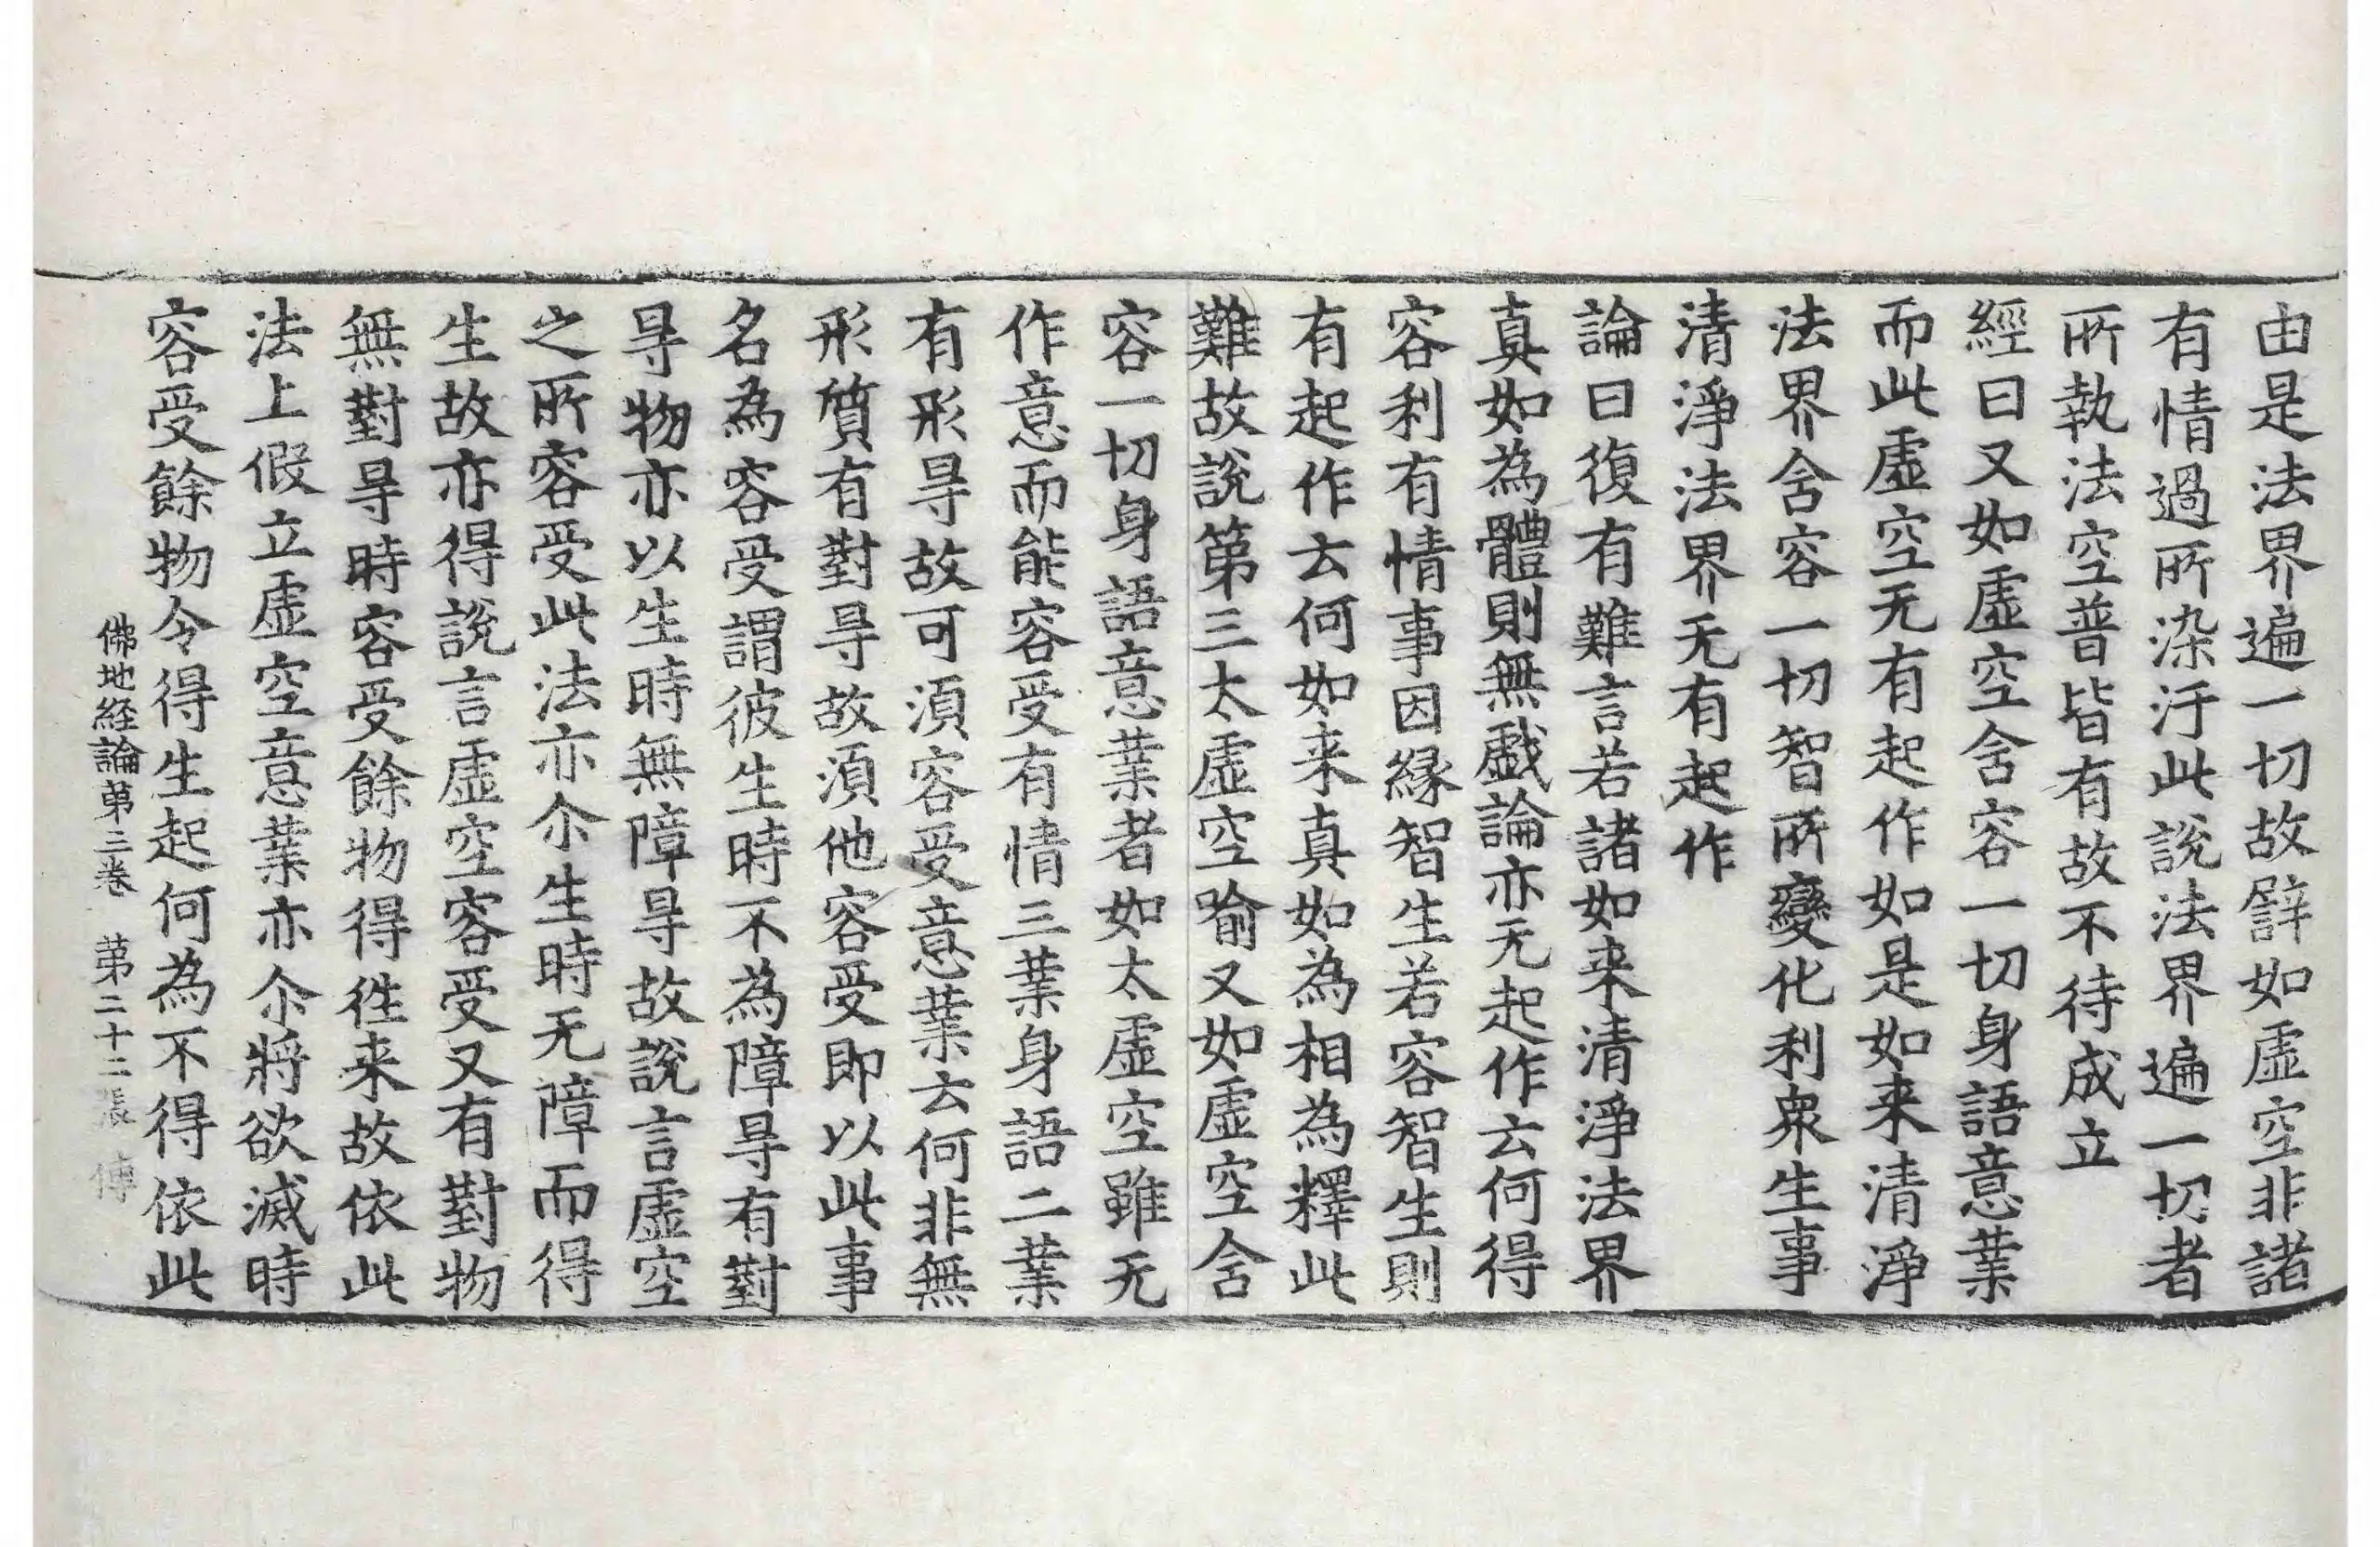 由是法界遍一切故譬如虛空非諸
有情過所染汙此說法界遍一切者
所執法空普皆有故不待成立
經曰又如虛空含容一切身語意業
而此虛空无有起作如是如来清淨
法界含容一切智所變化利衆生事
清淨法界无有起作
論曰復有難言若諸如来清淨法界
真如為體則無戲論亦无起作云何得
容利有情事因縁智生若容智生則
有起作云何如来真如為相為釋此
難故說第三太虛空喻又如虛空含
容一切身語意業者如太虛空雖无
作意而能容受有情三業身語二業
有形㝵故可須容受意業云何非無
形質有對㝵故須他容受即以此事
名為容受謂彼生時不為障㝵有對
㝵物亦以生時無障㝵故說言虛空
之所容受此法亦尒生時无障而得
生故亦得說言虛空容受又有對物
無對㝵時容受餘物得徃来故依此
法上假立虛空意業亦尒將欲滅時
容受餘物令得生起何為不得依此
佛地経論第三卷 第二十二張 傅